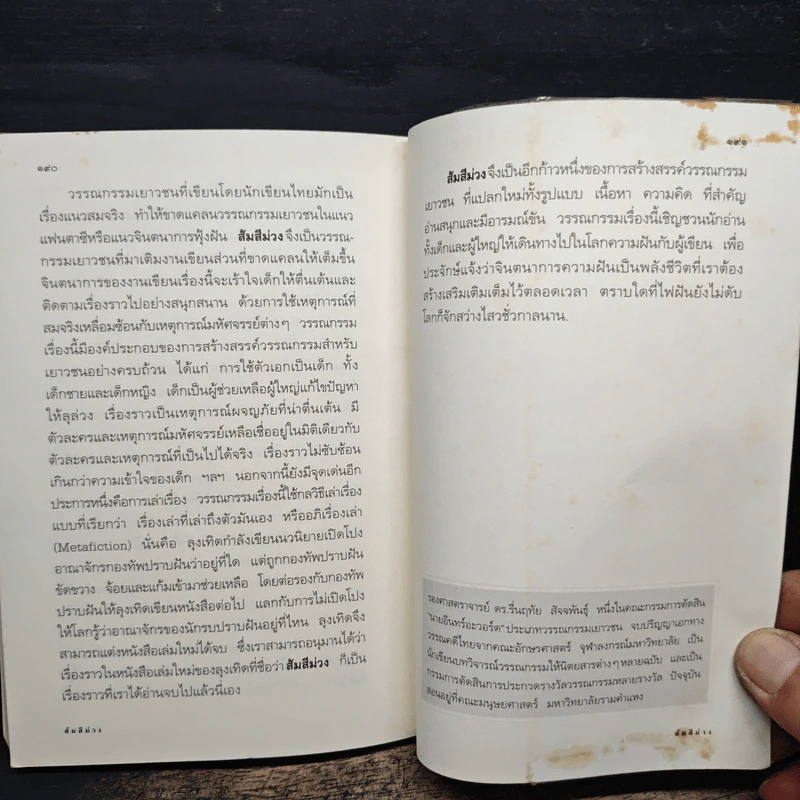 ๑๙๐
วรรณกรรมเยาวชนที่เขียนโดยนักเขียนไทยมักเป็น
เรื่องแนวสมจริง ทำให้ขาดแคลนวรรณกรรมเยาวชนในแนว
แฟนตาซีหรือแนวจินตนาการฟุ้งฝัน ส้มสีม่วง จึงเป็นวรรณ-
กรรมเยาวชนที่มาเติมงานเขียนส่วนที่ขาดแคลนให้เต็มขึ้น
จินตนาการของงานเขียนเรื่องนี้จะเร้าใจเด็กให้ตื่นเต้นและ
ติดตามเรื่องราวไปอย่างสนุกสนาน ด้วยการใช้เหตุการณ์ที่
สมจริงเหลื่อมซ้อนกับเหตุการณ์มหัศจรรย์ต่างๆ วรรณกรรม
เรื่องนี้มีองค์ประกอบของการสร้างสรรค์วรรณกรรมสำหรับ
เยาวชนอย่างครบถ้วน ได้แก่ การใช้ตัวเอกเป็นเด็ก ทั้ง
เด็กชายและเด็กหญิง เด็กเป็นผู้ช่วยเหลือผู้ใหญ่แก้ไขปัญหา
ให้ลุล่วง เรื่องราวเป็นเหตุการณ์ผจญภัยที่น่าตื่นเต้น มี
ตัวละครและเหตุการณ์มหัศจรรย์เหลือเชื่ออยู่ในมิติเดียวกับ
ตัวละครและเหตุการณ์ที่เป็นไปได้จริง เรื่องราวไม่ซับซ้อน
เกินกว่าความเข้าใจของเด็ก ฯลฯ นอกจากนี้ยังมีจุดเด่นอีก
ประการหนึ่งคือการเล่าเรื่อง วรรณกรรมเรื่องนี้ใช้กลวิธีเล่าเรื่อง
แบบที่เรียกว่า เรื่องเล่าที่เล่าถึงตัวมันเอง หรืออภิเรื่องเล่า
(Metafiction) นั่นคือ ลุงเทิดกำลังเขียนนวนิยายเปิดโปง
อาณาจักรกองทัพปราบฝันว่าอยู่ที่ใด แต่ถูกกองทัพปราบฝัน
ขัดขวาง จ้อยและแก้มเข้ามาช่วยเหลือ โดยต่อรองกับกองทัพ
ปราบฝันให้ลุงเทิดเขียนหนังสือต่อไป แลกกับการไม่เปิดโปง
ให้โลกรู้ว่าอาณาจักรของนักรบปราบฝันอยู่ที่ไหน ลุงเทิดจึง
สามารถแต่งหนังสือเล่มใหม่ได้จบ ซึ่งเราสามารถอนุมานได้ว่า
เรื่องราวในหนังสือเล่มใหม่ของลุงเทิดที่ชื่อว่า ส้มสีม่วง ก็เป็น
เรื่องราวที่เราได้อ่านจบไปแล้วนี่เอง
ส้มสีม่วง
๑๙๑
ส้มสีม่วง จึงเป็นอีกก้าวหนึ่งของการสร้างสรรค์วรรณกรรม
เยาวชน ที่แปลกใหม่ทั้งรูปแบบ เนื้อหา ความคิด ที่สำคัญ
อ่านสนุกและมีอารมณ์ขัน วรรณกรรมเรื่องนี้เชิญชวนนักอ่าน
ทั้งเด็กและผู้ใหญ่ให้เดินทางไปในโลกความฝันกับผู้เขียน เพื่อ
ประจักษ์แจ้งว่าจินตนาการความฝันเป็นพลังชีวิตที่เราต้อง
สร้างเสริมเติมเต็มไว้ตลอดเวลา ตราบใดที่ไฟฝันยังไม่ดับ
โลกก็จักสว่างไสวชั่วกาลนาน.
รองศาสตราจารย์ ดร.รื่นฤทัย สัจจพันธุ์ หนึ่งในคณะกรรมการตัดสิน
"นายอินทร์อะวอร์ด" ประเภทวรรณกรรมเยาวชน จบปริญญาเอกทาง
วรรณคดีไทยจากคณะอักษรศาสตร์ จุฬาลงกรณ์มหาวิทยาลัย เป็น
นักเขียนบทวิจารณ์วรรณกรรมให้นิตยสารต่างๆ หลายฉบับ และเป็น
กรรมการตัดสินการประกวดรางวัลวรรณกรรมหลายรางวัล ปัจจุบัน
สอนอยู่ที่คณะมนุษยศาสตร์ มหาวิทยาลัยรามคำแหง
ส้มสีม่วง